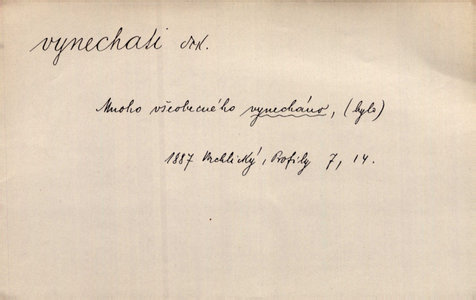 vynechati dok.
Mnoho všeobecného vynecháno, (bylo)
1887 Vrchlický, Profily 7, 14.